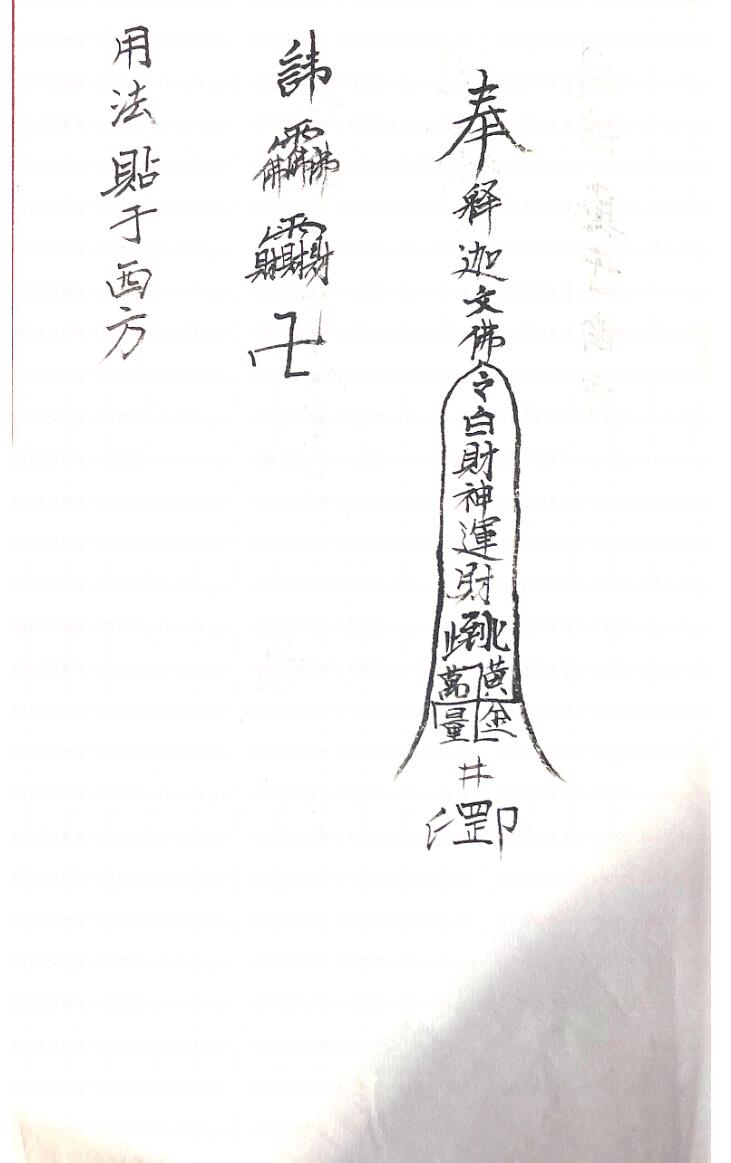 奉释迦文佛令白財神運財
黃金萬量
井
諱
卍
用法貼于西方